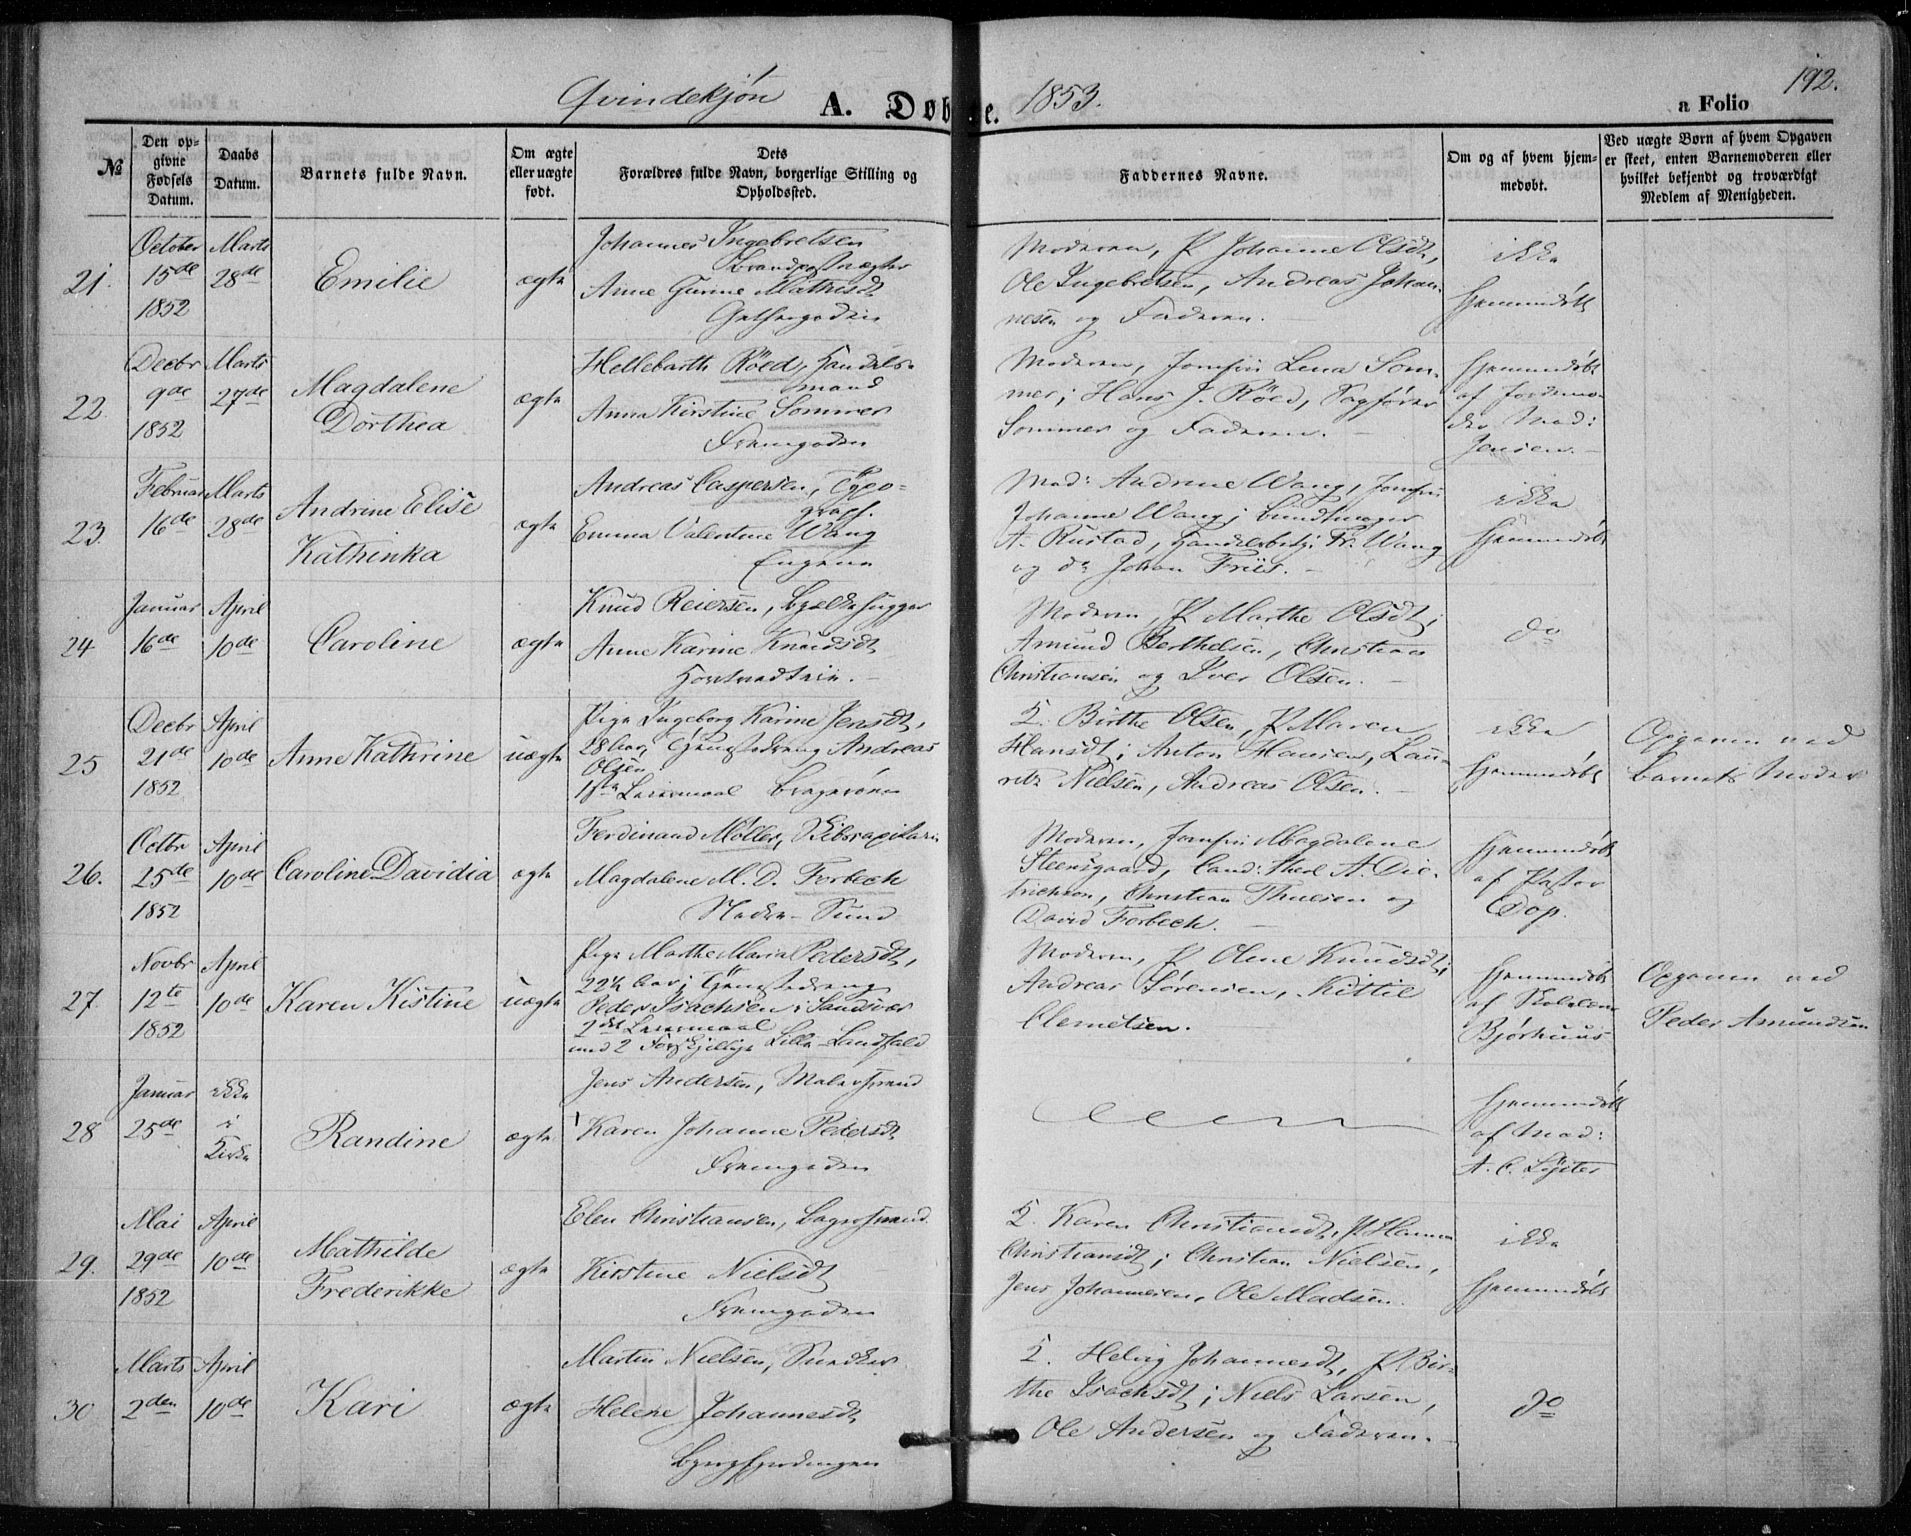 Qvindekjøn A. Døbte. 1853. a Folio 192.
№
Den op-
givne
Fødsels
Datum.
Daabs
Datum.
Barnets fulde Navn.
Om ægte
eller uægte
født.
Dets
Forældres fulde Navn, borgerlige Stilling og
Opholdssted.
Faddernes Navne.
Om og af hvem hjem-
medøbt.
Ved uægte Børn af hvem Opgaven
er skeet, enten Barnemoderen eller
hvilket bekjendt og troværdigt
Medlem af Menigheden.
21.
October
15de
1852
Marts
28de
Emilie
ægte
Johannes Ingebretsen
Anne Gurine Mathisdt
Moderen, P Johanne Olsdt,
Ole Ingebretsen, Andreas Johan-
nesen og Faderen.
ikke
hjemmedøbt
22.
Decbr
9de
1852
Marts
27de
Magdalene
Dorthea
ægte
Hellebarth Röed, Handels-
mand
Anna Kirstine Sommer
Strømgaden
Moderen, Jomfru Lena Som-
mer; Hans J. Röed, Sagfører
Sommer og Faderen.
hjemmedøbt
af Jordemo-
der Mad:
Jensen.
23.
Februar
16de
Marts
28de
Andrine Elise
Kathinka
ægte
Andreas Caspersen, Typo-
graf.
Emma Valentine Wang
Engene
Mad: Andrine Wang, Jomfru
Johanne Wang; Bundtmager
A. Rustad, Handelsbetj: Fr. Wang
og do Johan Friis.
ikke
hjemmedøbt
24
Januar
16de
April
10de
Caroline
ægte
Knud Reiersen, Bjælkehugger
Anne Karine Knudsdt
Moderen, P Marthe Olsdt;
Amund Berthelsen, Christian
Christiansen og Iver Olsen.
do
25
Decbr
21de
1852
April
10de
Anne Kathrine
uægte
Pige Ingeborg Karine Jensdt,
28 Aar, Tjenestedreng Andreas
Olsen
1ste Leiermaal Bragerøen
K. Birthe Olsen, P Maren
Hansdt; Anton Hansen, Lau-
rits Nielsen, Andreas Olsen.
ikke
hjemmedøbt
Opgaven ved
Barnets Moder
26.
Octbr
25de
1852
April
10de
Caroline Davidia
ægte
Ferdinand Møller, Skibscapitain
Magdalene M. D. Forbech
Nedre-Sund
Moderen, Jomfru Magdalene
Steensgaard, Cand: theol A. Die-
trichson, Christian Thuesen og
David Forbech.
hjemmedøbt
af Pastor
Dop.
27.
Novbr
12te
1852
April
10de
Karen Kistine
uægte
Pige Marthe Maria Pedersdt,
22½ Aar; Tjenestedreng
Peder Isachsen i Sandsvær
2det Leiermaal
med 2 Forskjellige Lille-Landfald
Moderen, P Olene Knudsdt;
Andreas Sørensen, Kittil
Clemetsen.
hjemmedøbt
af Skolelærer
Bjørhuus
Opgaven ved
Peder Amundsen
28
Januar
25de
ikke
i
Kirke
Randine
ægte
Jens Andersen, Malersvend
Karen Johanne Pedersdt
Strømgaden
hjemmedøbt
af Mad:
29.
Mai
29de
1852
April
10de
Mathilde
Frederikke
ægte
Elen Christiansen, Bagersvend
Kirstine Nielsdt
Strømgaden
K. Karen Christiansdt, P. Hanna
Christiansdt; Christian Nielsen,
Jens Johannesen, Ole Madsen.
ikke
hjemmedøbt
30
Marts
2den
April
10de
Kari
ægte
Martin Nielsen, Snedker
Helene Johannesdt
Bergfjerdingen
K. Helvig Johannesdt, P. Bir-
the Isachsdt; Niels Larsen,
Ole Andersen og Faderen.
do